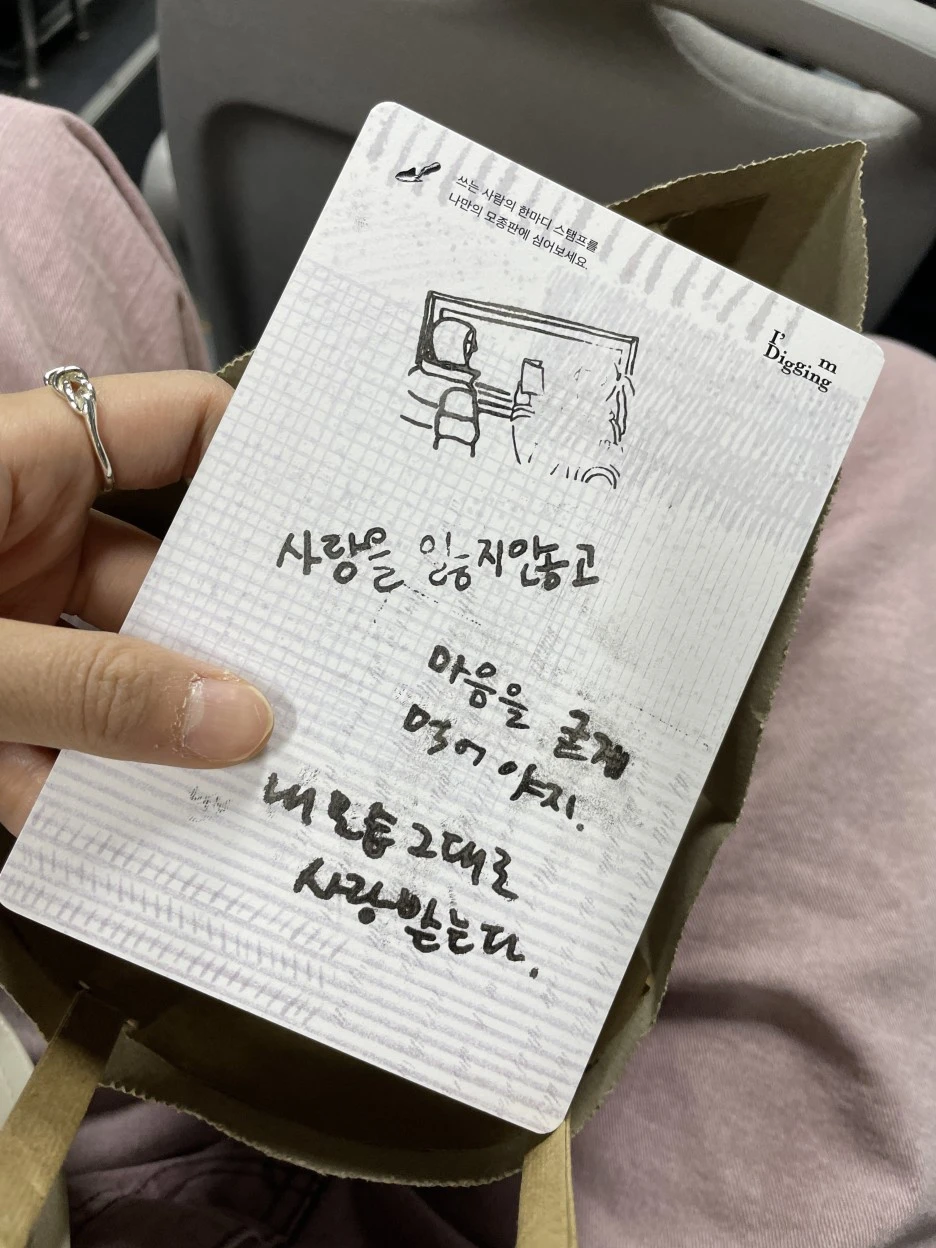 쓰는 사람의 한마디 스탬프를
나만의 모종판에 심어보세요.
I'm
Digging
사랑을 잃지안놓고
마음을 굳게
먹어야지.
내 모습 그대로
사랑받는다.